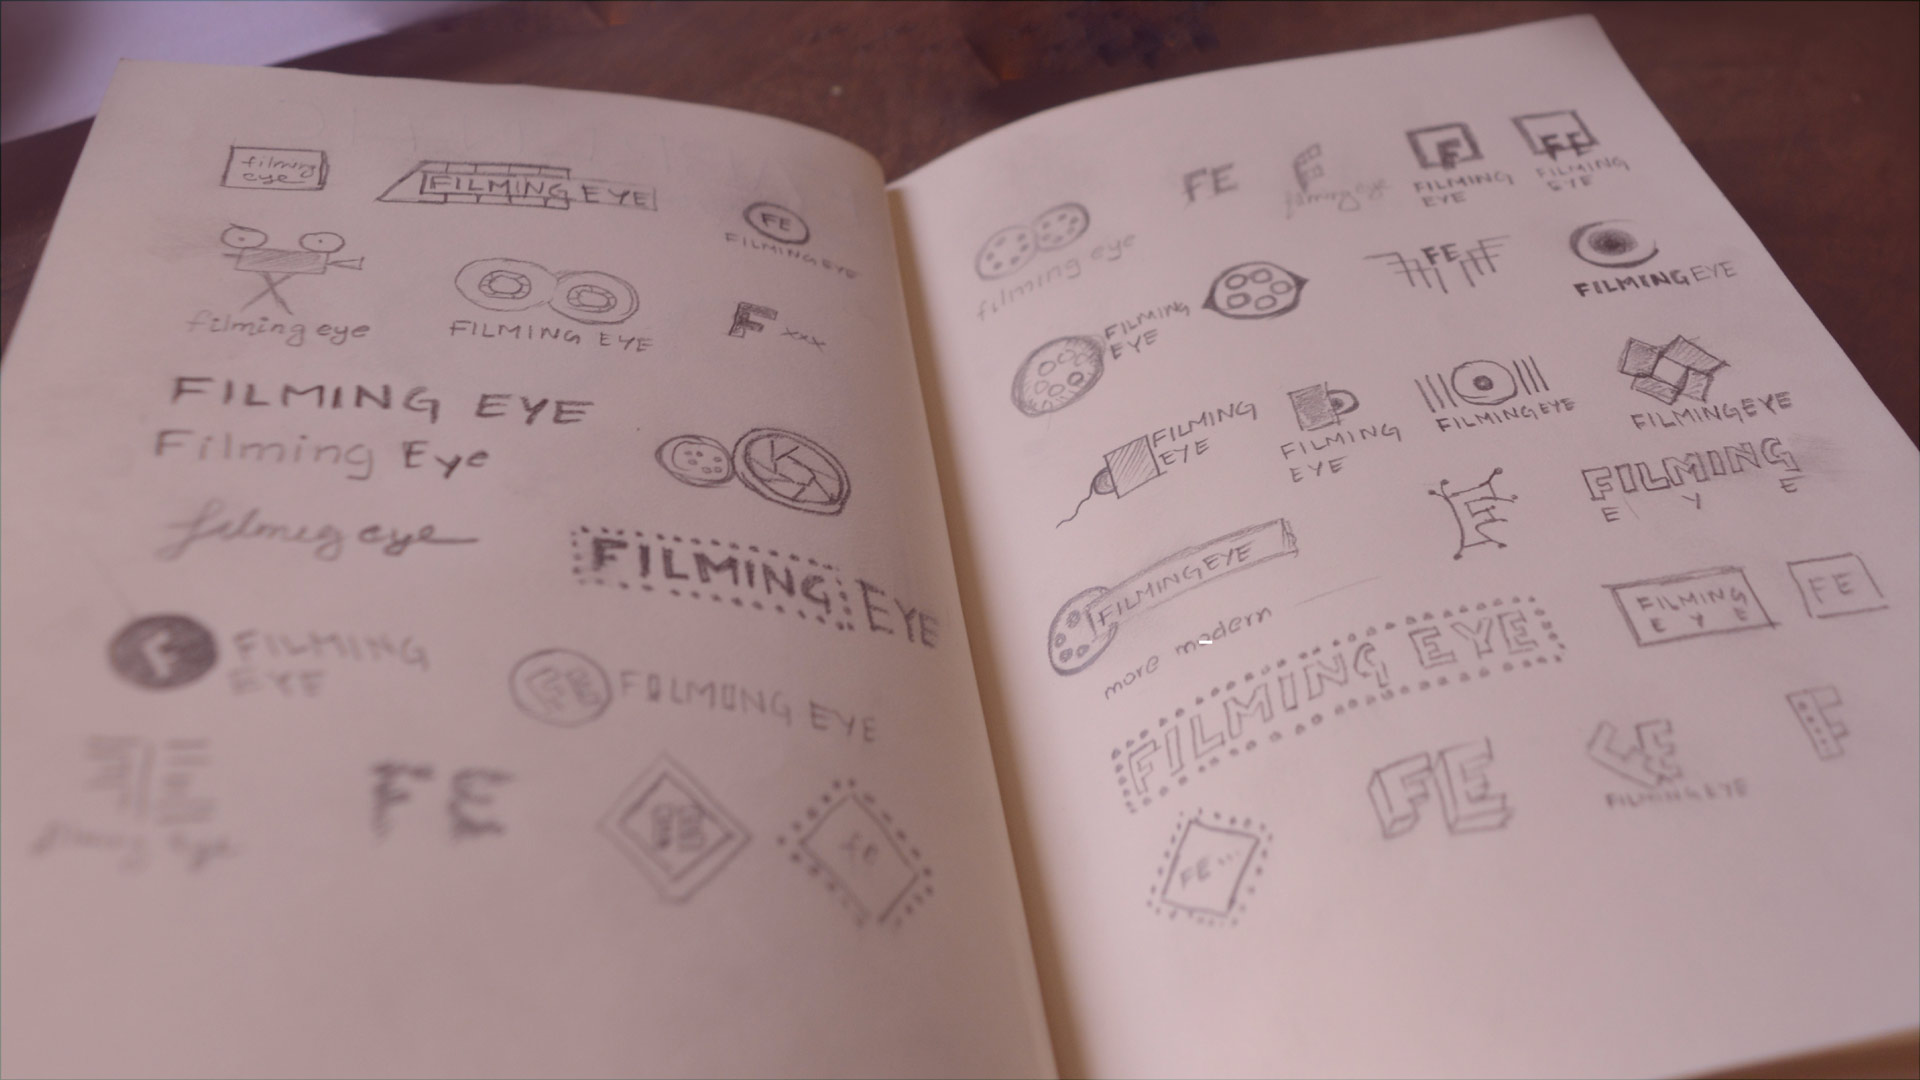 filming
eye
FILMING EYE
FE
FILMING EYE
filming eye
FILMING EYE
F xxx
FILMING EYE
Filming Eye
filmig eye
FILMING EYE
F FILMING
EYE
FE FILMING EYE
FE
FE
filming eye
FE
F
filming eye
F
FILMING
EYE
FE
FILMING
EYE
FILMING
EYE
FE
FILMING EYE
FILMING
EYE
FILMING
EYE
FILMING EYE
FILMING EYE
E
FILMING
E Y E
FILMING EYE
more modern
FILMING EYE
FILMING
E Y E
FE
FE
FE
FE
FILMING EYE
F